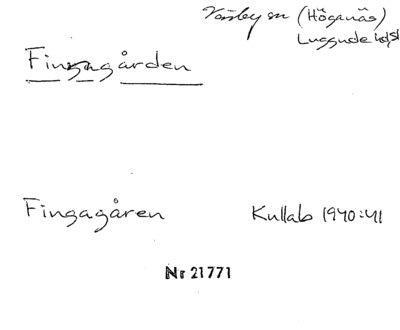 Väsby sn (Höganäs)
Luggude hd, Sk
Fingagården
Fingagåren Kullab 1940:41
Nr 21771